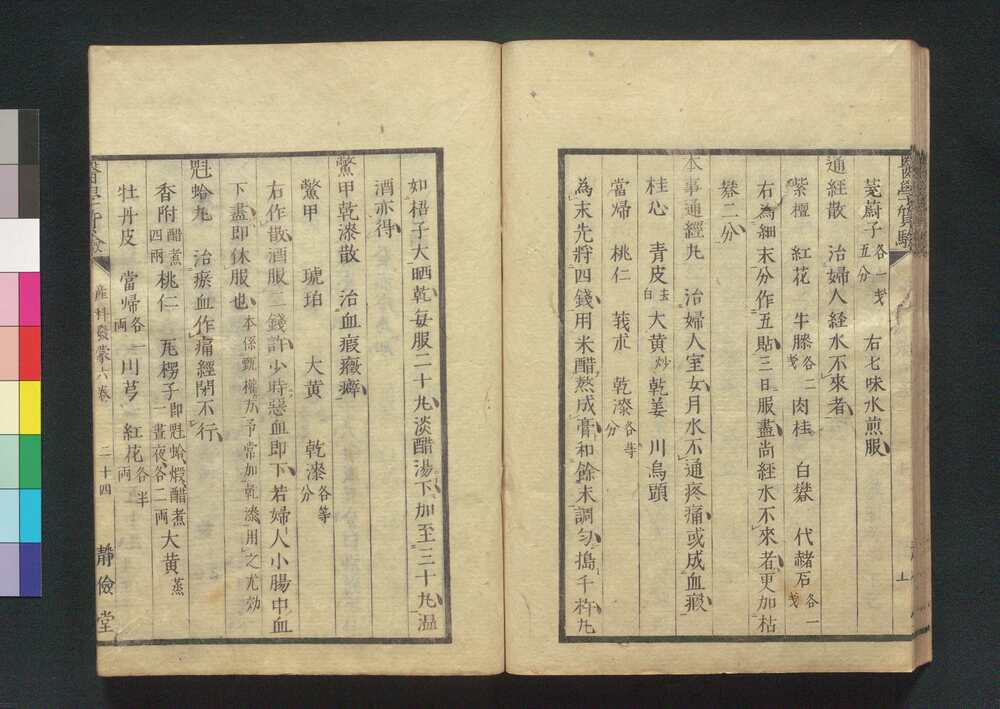 茺蔚子各一戔五分　右七味水煎服
通經散　治婦人経水不來者
紫檀　紅花　牛膝各二戔　肉桂　白礬　代赭石各一戔
右為細末分作五貼三日服盡尚経水不來者更加枯
礬二分
本事通經丸　治婦人室女月水不通疼痛或成血瘕
桂心　青皮去白　大黄炒　乾姜　川烏頭
當帰　桃仁　莪朮　乾漆各等分
為末先将四錢用米醋熬成膏和餘末調勻搗千杵丸
如梧子大晒乾每服二十丸淡醋湯下加至三十丸温
酒亦得
鱉甲乾漆散　治血瘕癥癖
鱉甲　琥珀　大黄　乾漆各等分
右作散酒服二錢許少時惡血即下若婦人小腸中血
下盡即休服也本係甄權方予常加乾漆用之尤効
魁蛤丸　治瘀血作痛經閉不行
香附醋煮四兩　桃仁　瓦楞子即魁蛤煆醋煮一晝夜各二兩　大黄蒸
牡丹皮　當帰各一兩　川芎　紅花各半兩
産科發蒙六巻　二十四　靜儉堂